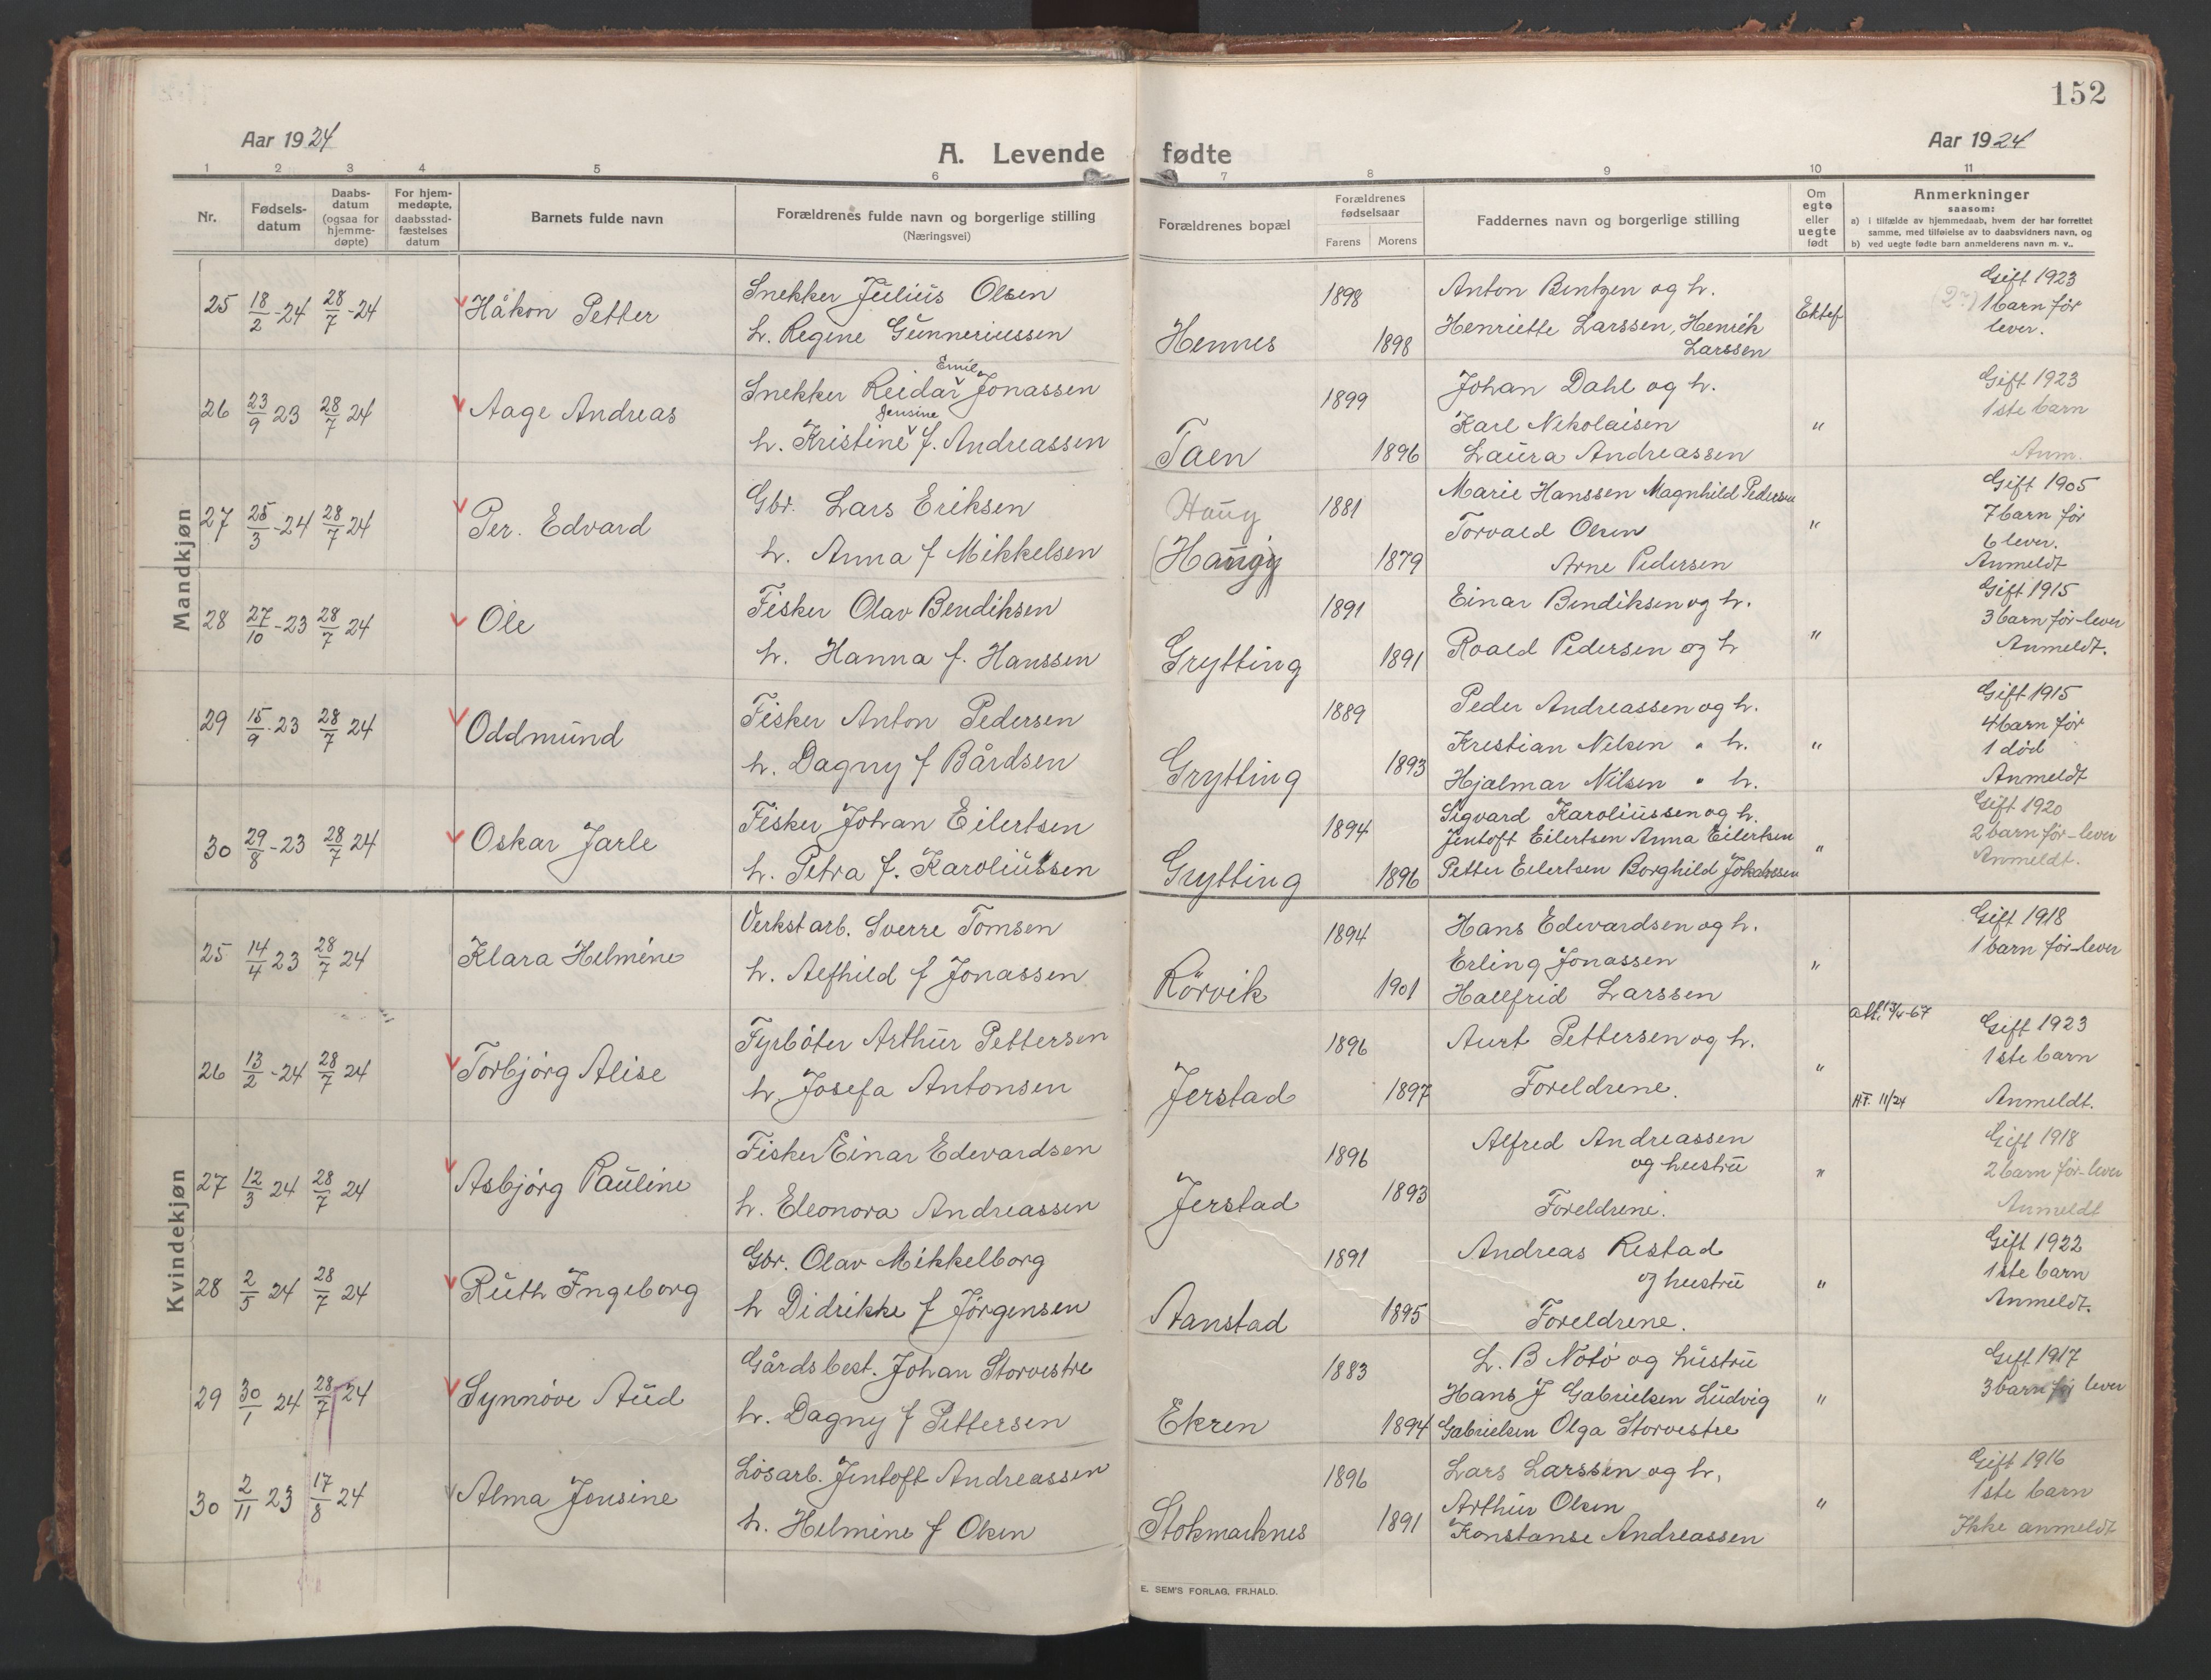 152
Aar 1924
A. Levende fødte
Aar 1924
1 2 3 4 5 6 7 8 9 10 11
Nr.
Fødsels-
datum
Daabs-
datum
(ogsaa for
hjemme-
døpte)
For hjem-
medøpte,
daabsstad-
fæstelses
datum
Barnets fulde navn
Forældrenes fulde navn og borgerlige stilling
(Næringsvei)
Forældrenes bopæl
Forældrenes
fødselsaar
Farens Morens
Faddernes navn og borgerlige stilling
Om
egte
eller
uegte
født
Anmerkninger
saasom:
a) i tilfælde av hjemmedaab, hvem der har forrettet
samme, med tilføielse av to daabsvidners navn, og
b) ved uegte fødte barn anmelderens navn m. v..
Mandkjøn
25 18/2-24 28/7-24 Håkon Petter
Snekker Julius Olsen
h. Regine Gunneriussen
Hennes 1898 1898
Anton Bentzen og h.
Henriette Larssen, Henrik
Larssen
Ektef
Gift 1923
1 barn før
lever.
26 23/9 23 28/7 24 Aage Andreas
Emil
Snekker Reidar Jonassen
Jensine
h. Kristine f. Andreassen
Taen 1899 1896
Johan Dahl og h.
Karl Nikolaisen
Laura Andreassen
"
Gift 1923
1ste barn
Anm.
27 25/3-24 28/7 24 Per. Edvard
Gbr. Lars Eriksen
h. Anna f Mikkelsen
Haug
(Haug)
1881 1879
Marie Hanssen Magnhild Pedersen
Torvald Olsen
Arne Pedersen
"
Gift 1905
7 barn før
6 lever.
Anmeldt
28 27/10-23 28/7 24 Ole
Fisker Olav Bendiksen
h. Hanna f. Hanssen
Grytting 1891 1891
Einar Bendiksen og h.
Roald Pedersen og h
"
Gift 1915
3 barn før-lever
Anmeldt.
29 15/9-23 28/7 24 Oddmund
Fisker Anton Pedersen
h. Dagny f Bårdsen
Grytting 1889 1893
Peder Andreassen og h.
Kristian Nilsen " h.
Hjalmar Nilsen " h.
"
Gift 1915
4 barn før
1 død
Anmeldt
30 29/8-23 28/7 24 Oskar Jarle
Fisker Johan Eilertsen
h. Petra f. Karoliussen
Grytting 1894 1896
Sigvard Karoliussen og h.
Jentoft Eilertsen Anna Eilertsen
Petter Eilertsen Borghild Johanssen
"
Gift 1920
2 barn før-lever
Anmeldt.
Kvindekjøn
25 14/4 23 28/7 24 Klara Helmine
Verkstarb. Sverre Tomsen
h. Alfhild f Jonassen
Rörvik 1894 1901
Hans Edvardsen og h.
Erling Jonassen
Hallfrid Larssen
"
Gift 1918
1 barn før-lever
26 13/2-24 28/7 24 Torbjørg Alise
Fyrbøter Arthur Pettersen
h. Josefa Antonsen
Jerstad 1896 1897
Aurt Pettersen og h.
Foreldrene.
"
H.F. 11/24
Gift 1923
1ste barn
Anmeldt.
27 12/3 24 28/7 24 Asbjørg Pauline
Fisker Einar Edvardsen
h. Eleonora Andreassen
Jerstad 1896 1893
Alfred Andreassen
og hustru
Foreldrene.
"
Gift 1918
2 barn før-lever
Anmeldt
28 2/5 24 28/7 24 Ruth Ingeborg
Gbr. Olav Mikkelborg
h Didrikke f Jörgensen
Aanstad 1891 1895
Andreas Restad
og hustru
Foreldrene.
"
Gift 1922
1ste barn
Anmeldt.
29 30/1 24 28/7 24 Synnøve Aud
Gårdsbest. Johan Storvestre
h. Dagny f Pettersen
Ekren 1883 1894
L. B Notø og hustru
Hans J Gabrielsen Ludvig
Gabrielsen Olga Storvestre
"
Gift 1917
3 barn før lever
30 2/11 23 17/8 24 Alma Jensine
Løsarb. Jentoft Andreassen
h. Helmine f Olsen
Stokmarknes 1896 1891
Lars Larssen og h,
Arthur Olsen
Konstanse Andreassen
"
Gift 1916
1ste barn
Ikke anmeldt
E. SEM'S FORLAG. FR.HALD.